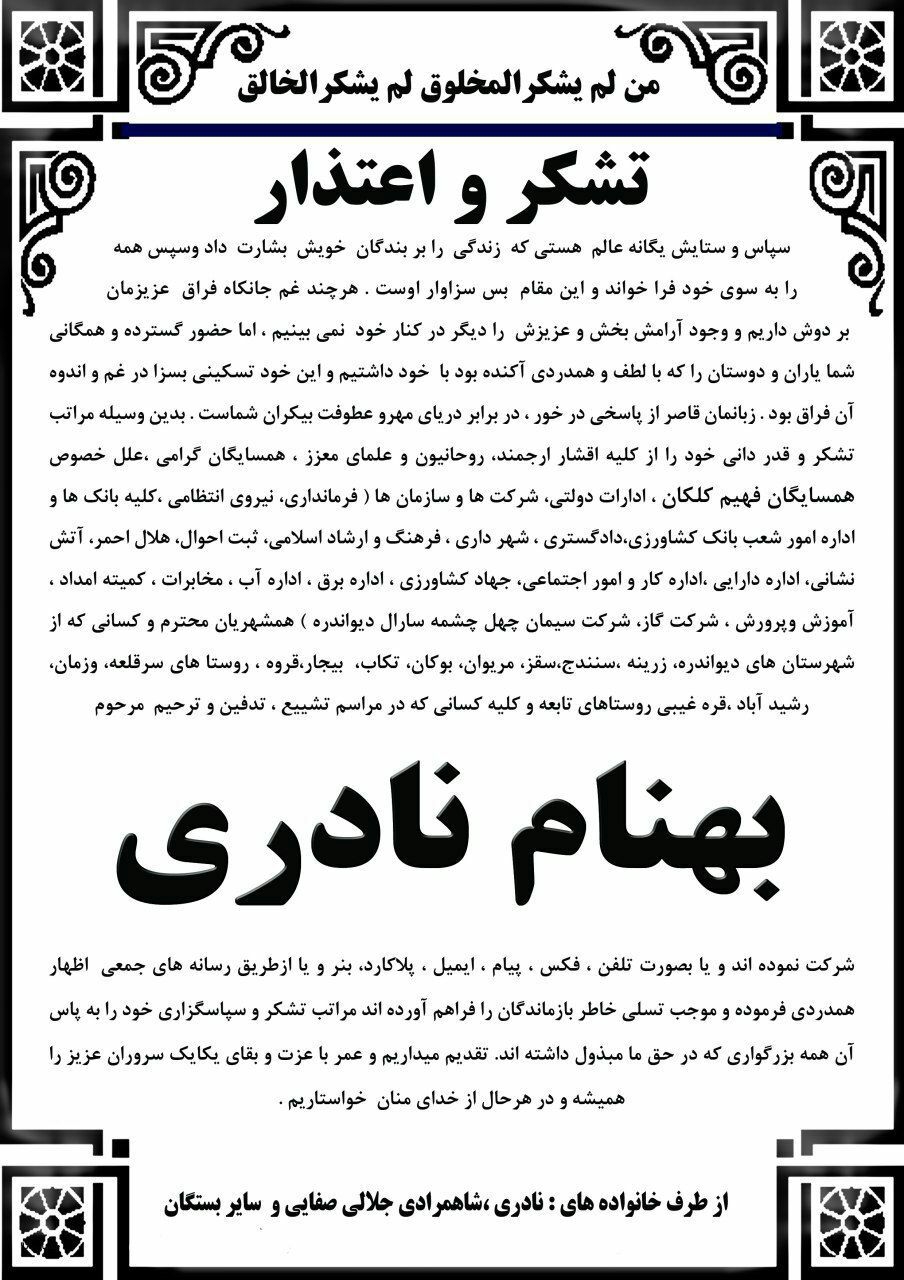 من لم یشکرالمخلوق لم یشکرالخالق
تشکر و اعتذار
سپاس و ستایش یگانه عالم هستی که زندگی را بر بندگان خویش بشارت داد وسپس همه
را به سوی خود فرا خواند و این مقام بس سزاوار اوست . هرچند غم جانکاه فراق عزیزمان
بر دوش داریم و وجود آرامش بخش و عزیزش را دیگر در کنار خود نمی بینیم ، اما حضور گسترده و همگانی
شما یاران و دوستان را که با لطف و همدردی آکنده بود با خود داشتیم و این خود تسکینی بسزا در غم و اندوه
آن فراق بود . زبانمان قاصر از پاسخی در خور ، در برابر دریای مهرو عطوفت بیکران شماست . بدین وسیله مراتب
تشکر و قدر دانی خود را از کلیه اقشار ارجمند، روحانیون و علمای معزز ، همسایگان گرامی ،علل خصوص
همسایگان فهیم کلکان ، ادارات دولتی، شرکت ها و سازمان ها ( فرمانداری، نیروی انتظامی ،کلیه بانک ها و
اداره امور شعب بانک کشاورزی،دادگستری ، شهر داری ، فرهنگ و ارشاد اسلامی، ثبت احوال، هلال احمر، آتش
نشانی، اداره دارایی ،اداره کار و امور اجتماعی، جهاد کشاورزی ، اداره برق ، اداره آب ، مخابرات ، کمیته امداد ،
آموزش وپرورش ، شرکت گاز، شرکت سیمان چهل چشمه سارال دیواندره ) همشهریان محترم و کسانی که از
شهرستان های دیواندره، زرینه ،سنندج،سقز، مریوان، بوکان، تکاب، بیجار،قروه ، روستا های سرقلعه، وزمان،
رشید آباد ،قره غیبی روستاهای تابعه و کلیه کسانی که در مراسم تشییع ، تدفین و ترحیم مرحوم
بهنام نادری
شرکت نموده اند و یا بصورت تلفن ، فکس ، پیام ، ایمیل ، پلاکارد، بنر و یا ازطریق رسانه های جمعی اظهار
همدردی فرموده و موجب تسلی خاطر بازماندگان را فراهم آورده اند مراتب تشکر و سپاسگزاری خود را به پاس
آن همه بزرگواری که در حق ما مبذول داشته اند. تقدیم میداریم و عمر با عزت و بقای یکایک سروران عزیز را
همیشه و در هرحال از خدای منان خواستاریم .
از طرف خانواده های : نادری ،شاهمرادی جلالی صفایی و سایر بستگان